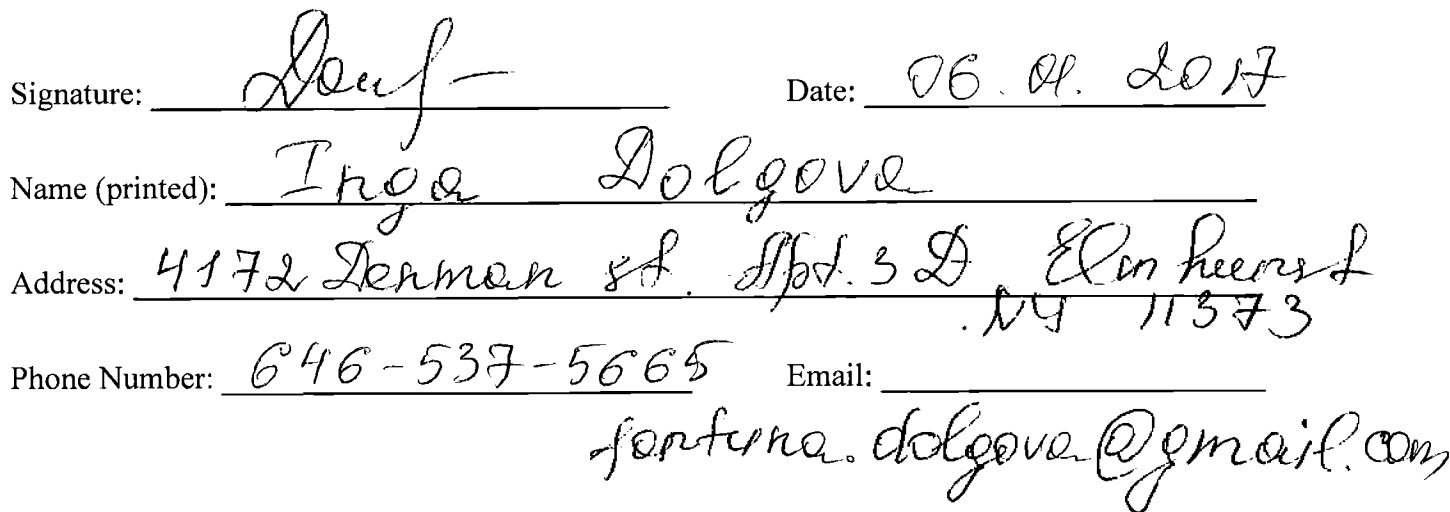 Signature: Date: 06. 01. 2017
Name (printed): Inga Dolgova
Address: 4172 Denman st. Apt. 3 D Elmheerst
. NY 11373
Phone Number: 646-537-5665 Email:
fortuna.dolgova@gmail.com